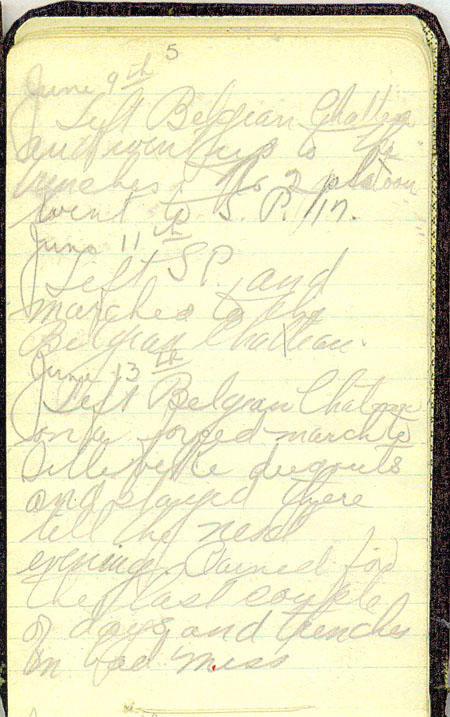 5
June 9th
Left Belgian Chattea
and went up to the
trenches. No 2 platoon
went to S. P. 17.
June 11th
Left S.P. and
marched to the
Belgian Chatteau.
June 13th
Left Belgian Chateau
on a forced march to
dugouts
and stayed there
till the next
evening. Rained for
the last couple
of days and trenches
in bad mess